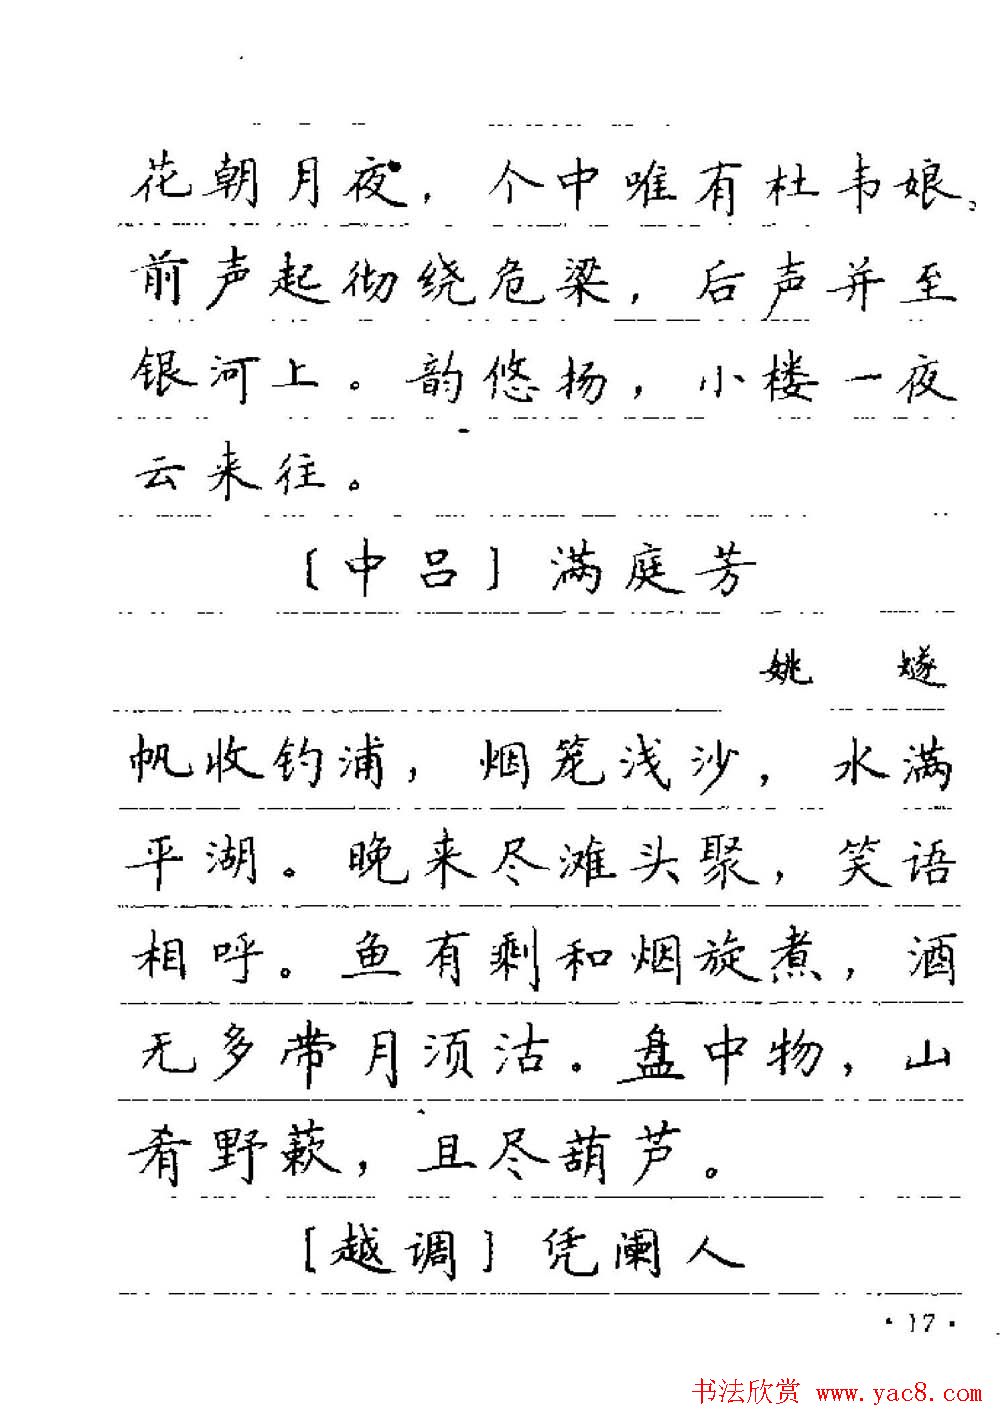 花朝月夜，个中唯有杜韦娘。
前声起彻绕危梁，后声并至
银河上。韵悠扬，小楼一夜
云来往。
〔中吕〕满庭芳
姚 燧
帆收钓浦，烟笼浅沙，水满
平湖。晚来尽滩头聚，笑语
相呼。鱼有剩和烟旋煮，酒
无多带月须沽。盘中物，山
肴野蔌，且尽葫芦。
〔越调〕凭阑人
·17·
书法欣赏 www.yac8.com